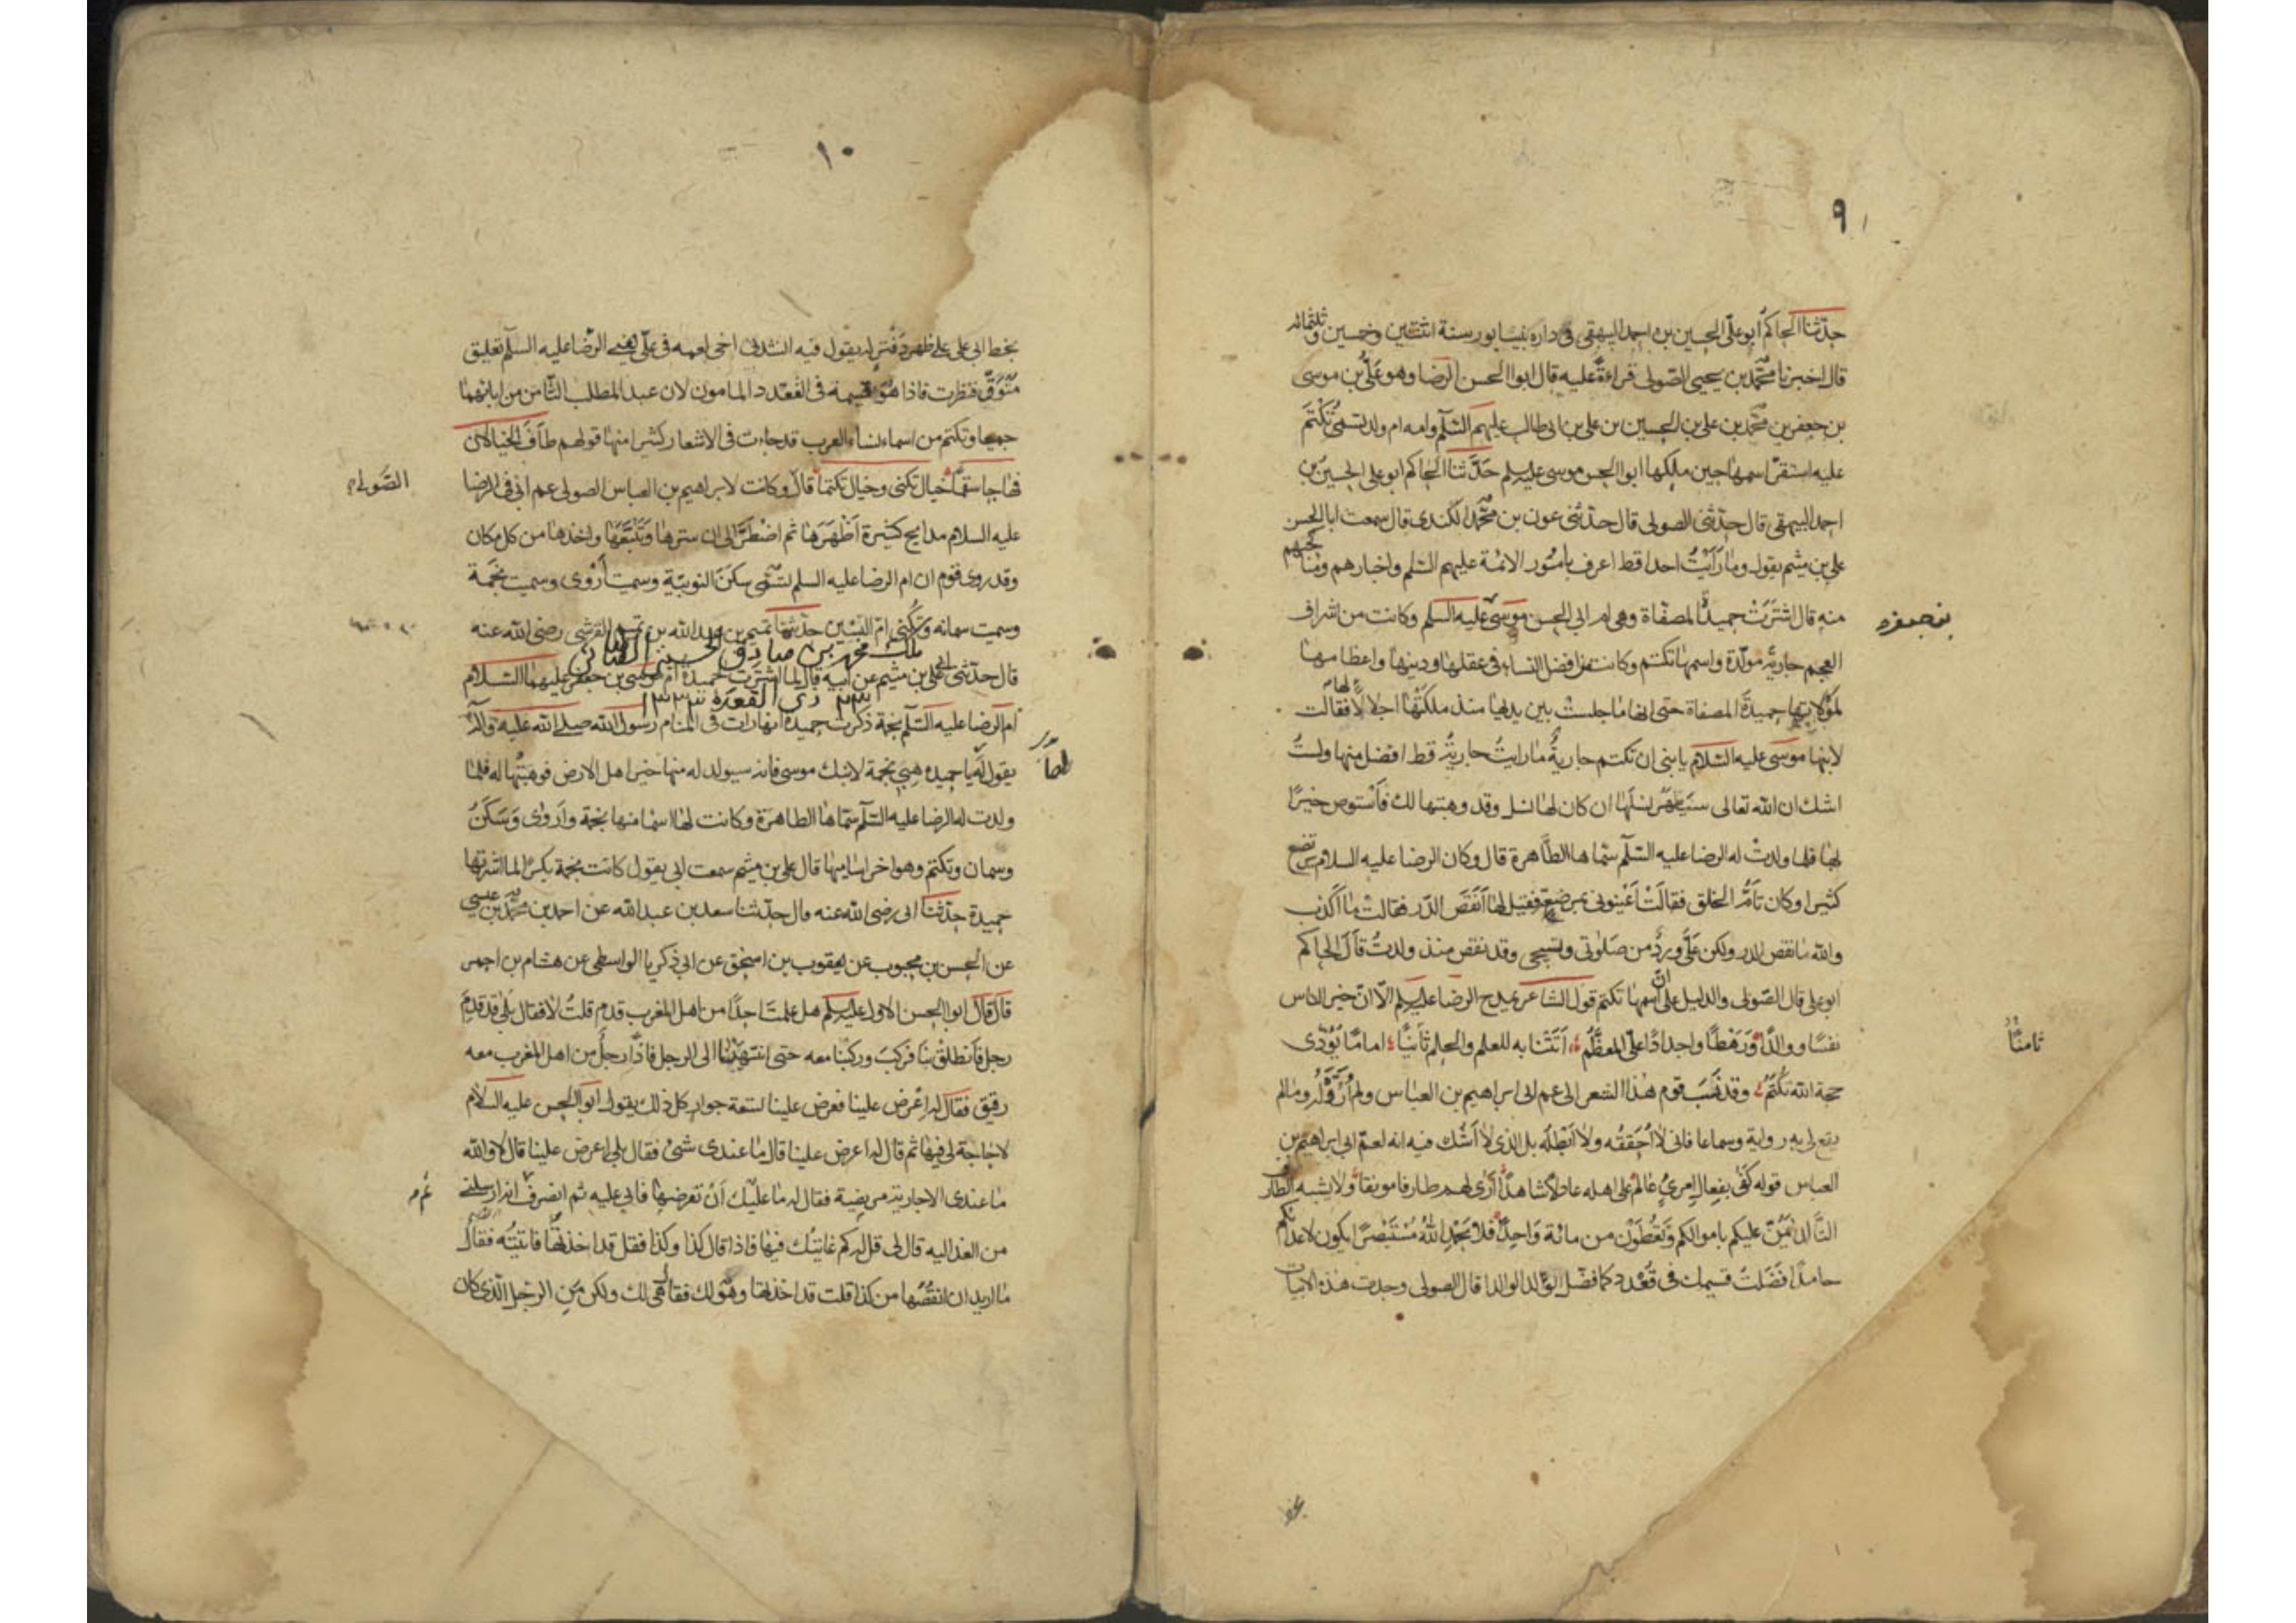 ٩
حدثنا الحاكم ابو علي الحسين بن احمد البيهقي في داره بنيسابور سنة اثنتين وخمسين وثلثمائه
قال اخبرنا محمد بن يحيى الصولى قراءة عليه قال ابو الحسن الرضا وهو علي بن موسى
بن جعفر بن محمد بن علي بن الحسين بن علي بن ابى طالب عليهم السلم وامه ام ولد تسمى تكتم
عليه استقر اسمها حين ملكها ابو الحسن موسى عليه السلم حدثنا الحاكم ابو على الحسين بن
احمد البيهقى قال حدثنى الصولى قال حدثنى عون بن محمد الكندى قال سمعت ابا الحسن
على بن ميثم يقول وما رأيت احدا قط اعرف بامور الائمة عليهم السلم واخبارهم ومناكحهم
منه قال اشترت حميدة المصفاة وهى ام ابي الحسن موسى عليه السلم وكانت من اشراف
العجم جارية مولدة واسمها تكتم وكانت من افضل النساء فى عقلها ودينها واعظامها
لمولاتها حميدة المصفاة حتى انها ما جلست بين يديها منذ ملكتها اجلالا لها فقالت
لابنها موسى عليه السلام يا بنى ان تكتم جارية ما رايت جارية قط افضل منها ولست
اشك ان الله تعالى سيطهر نسلها ان كان لها نسل وقد وهبتها لك فاستوص خيرا
بها فلما ولدت له الرضا عليه السلم سماها الطاهرة قال وكان الرضا عليه السلام يرتضع
كثيرا وكان تام الخلق فقالت اعينونى بمرضعة فقيل لها أنقص الدر فقالت ما اكذب
والله ما نقص الدر ولكن علي ورد من صلوتى وتسبيحى وقد نقص منذ ولدت قال الحاكم
ابو على قال الصولى والدليل على ان اسمها تكتم قول الشاعر يمدح الرضا عليه السلم الا ان خير الناس
نفسا ووالدا ورهطا واجدادا على المعظم اتتنا به للعلم والحلم ثانيا اماما يؤدى
ثامنا
حجة الله تكتم وقد نسب قوم هذا الشعر الى عم ابى ابراهيم بن العباس ولم اروه له وما لم
يقع لي به رواية وسماعا فانى لا احققه ولا ابطله بل الذى لا اشك فيه انه لعم ابى ابراهيم بن
العباس قوله كفى بفعال امرئ عالم على اهله عادلا شاهدا ارى لهم طارفا مونقا ولا يشبه الطارف
التالدا يمن عليكم باموالكم وتعطون من مائة واحدا فلا يحمد الله مستبصرا يكون لاعدائكم
حامدا فضلت قسيمك فى قعدد كما فضل الوالد الوالدا قال الصولى وجدت هذه الابيات
بخط
١٠
بخط ابى على على ظهر دفتر له يقول فيه انشدنى اخى لعمه فى على يعنى الرضا عليه السلم تعليق
متوق فنظرت فاذا هو قسيمه فى القعدد المامون لان عبد المطلب الثامن من ابائهما
جميعا وتكتم من اسماء نساء العرب قد جاءت فى الاشعار كثيرا منها قولهم طاف الخيالان
فهاجا سقما خيال تكنى وخيال تكتما قال وكانت لابراهيم بن العباس الصولى عم ابى فى الرضا
الصولى
عليه السلام مدايح كثيرة اظهرها ثم اضطر الى ان سترها وتتبعها واخذها من كل مكان
وقد روى قوم ان ام الرضا عليه السلم تسمى سكن النوبية وسميت أروى وسميت نجمة
وسميت سمانه وتكنى ام البنين حدثنا تميم بن عبد الله بن تميم القرشى رضى الله عنه
ملك محمد بن صادق الحسيني
قال حدثنى ابى علي بن ميثم عن ابيه قال لما اشترت حميدة ام موسى بن جعفر عليهما السلام
ذي القعدة
ام الرضا عليه السلم نجمة ذكرت حميدة انها رات فى المنام رسول الله صلى الله عليه واله
يقول لها يا حميدة هبى نجمة لابنك موسى فانه سيولد له منها خير اهل الارض فوهبتها له فلما
ولدت له الرضا عليه السلم سماها الطاهرة وكانت لها اسما منها نجمة واروى وسكن
وسمان وتكتم وهو اخر اساميها قال علي بن ميثم سمعت ابى يقول كانت نجمة بكرا لما اشترتها
حميدة حدثنا ابى رضى الله عنه قال حدثنا سعد بن عبد الله عن احمد بن محمد بن عيسى
عن الحسن بن محبوب عن يعقوب بن اسحق عن ابي زكريا الواسطى عن هشام بن احمر
قال قال ابو الحسن الاول عليه السلم هل علمت احدا من اهل المغرب قدم قلت لا فقال بلى قد قدم
رجل فانطلق بنا فركب وركبنا معه حتى انتهينا الى الرجل فاذا رجل من اهل المغرب معه
رقيق فقال له اعرض علينا فعرض علينا تسعة جوار كل ذلك يقول ابو الحسن عليه السلام
لا حاجة لى فيها ثم قال له اعرض علينا قال ما عندى شئ فقال بلى اعرض علينا قال لا والله
ما عندى الا جارية مريضة فقال له ما عليك ان تعرضها فابى عليه ثم انصرف ثم انه ارسلنى
من الغد اليه قال لى قل له كم غايتك فيها فاذا قال كذا وكذا فقل قد اخذتها فاتيته فقال
ما اريد ان انقصها من كذا قلت قد اخذتها وهو لك فقال هى لك ولكن من الرجل الذى كان